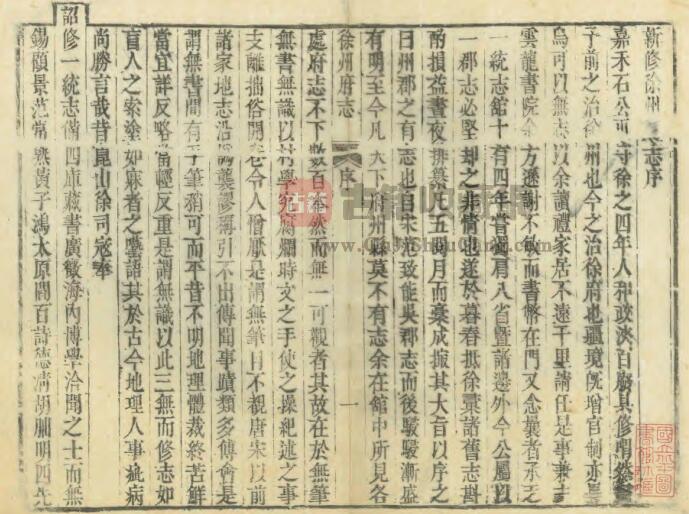 新修徐州志序
嘉禾石公守徐之四年人和政浹百廢具修
子前之治徐州也今之治徐府也疆境旣增官制亦
烏可以無志以余讀禮家居不遠千里請任是事兼主
雲龍書院余方遜謝不敏而書幣在門又念曩者承乏
一統志館十有四年嘗獨肩八省暨諸邊外今公屬以
一郡志必堅却之非情也遂於暮春抵徐彚諸舊志斟
酌損益晝夜排纂比五閱月而稾成撮其大旨以序之
曰州郡之有志也自宋范致能吳郡志而後駸駸漸盛
有明至今凡天下府州縣莫不有志余在舘中所見各
徐州府志
序
一
處府志不下數百然而無一可觀者其故在於無筆
無書無識以村學究腐爛時文之手使之操紀述之事
支離拙俗開卷令人憎厭是謂無筆目不覩唐宋以前
諸家地志沿譌襲謬稱引不出傳聞事蹟類多傅會是
謂無書間有手筆稍可而平昔不明地理體裁終苦鮮
當宜詳反略當輕反重是謂無識以此三無而修志如
盲人之索塗如麻者之囈語其於古今地理人事疵病
尚勝言哉昔崑山徐司寇奉
詔修一統志備四庫藏書廣徵海內博學洽聞之士而無
錫顧景范常熟黃子鴻太原閻百詩德淸胡朏明四先
古籍
www.GujiShuCang.com